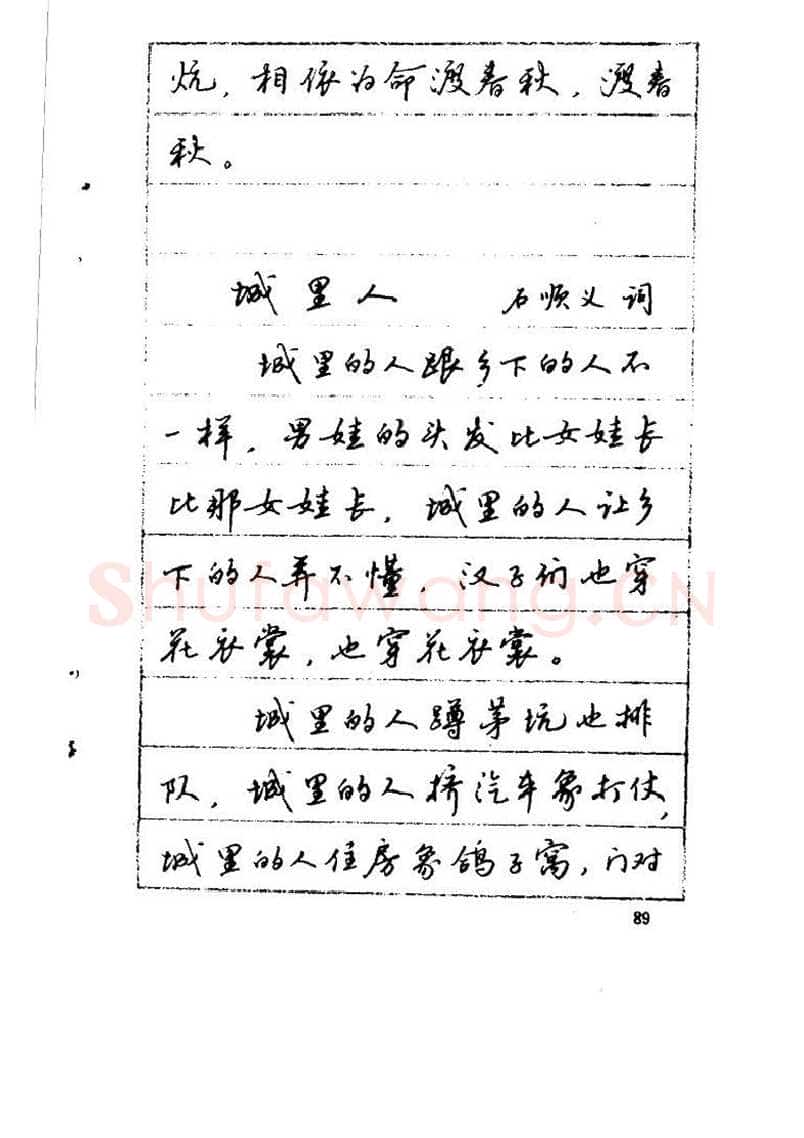 炕，相依为命渡春秋，渡春
秋。
城里人 石顺义词
城里的人跟乡下的人不
一样，男娃的头发比女娃长
比那女娃长，城里的人让乡
下的人弄不懂，汉子们也穿
花衣裳，也穿花衣裳。
城里的人蹲茅坑也排
队，城里的人挤汽车象打仗，
城里的人住房象鸽子窝，门对
89
Shufawang.CN